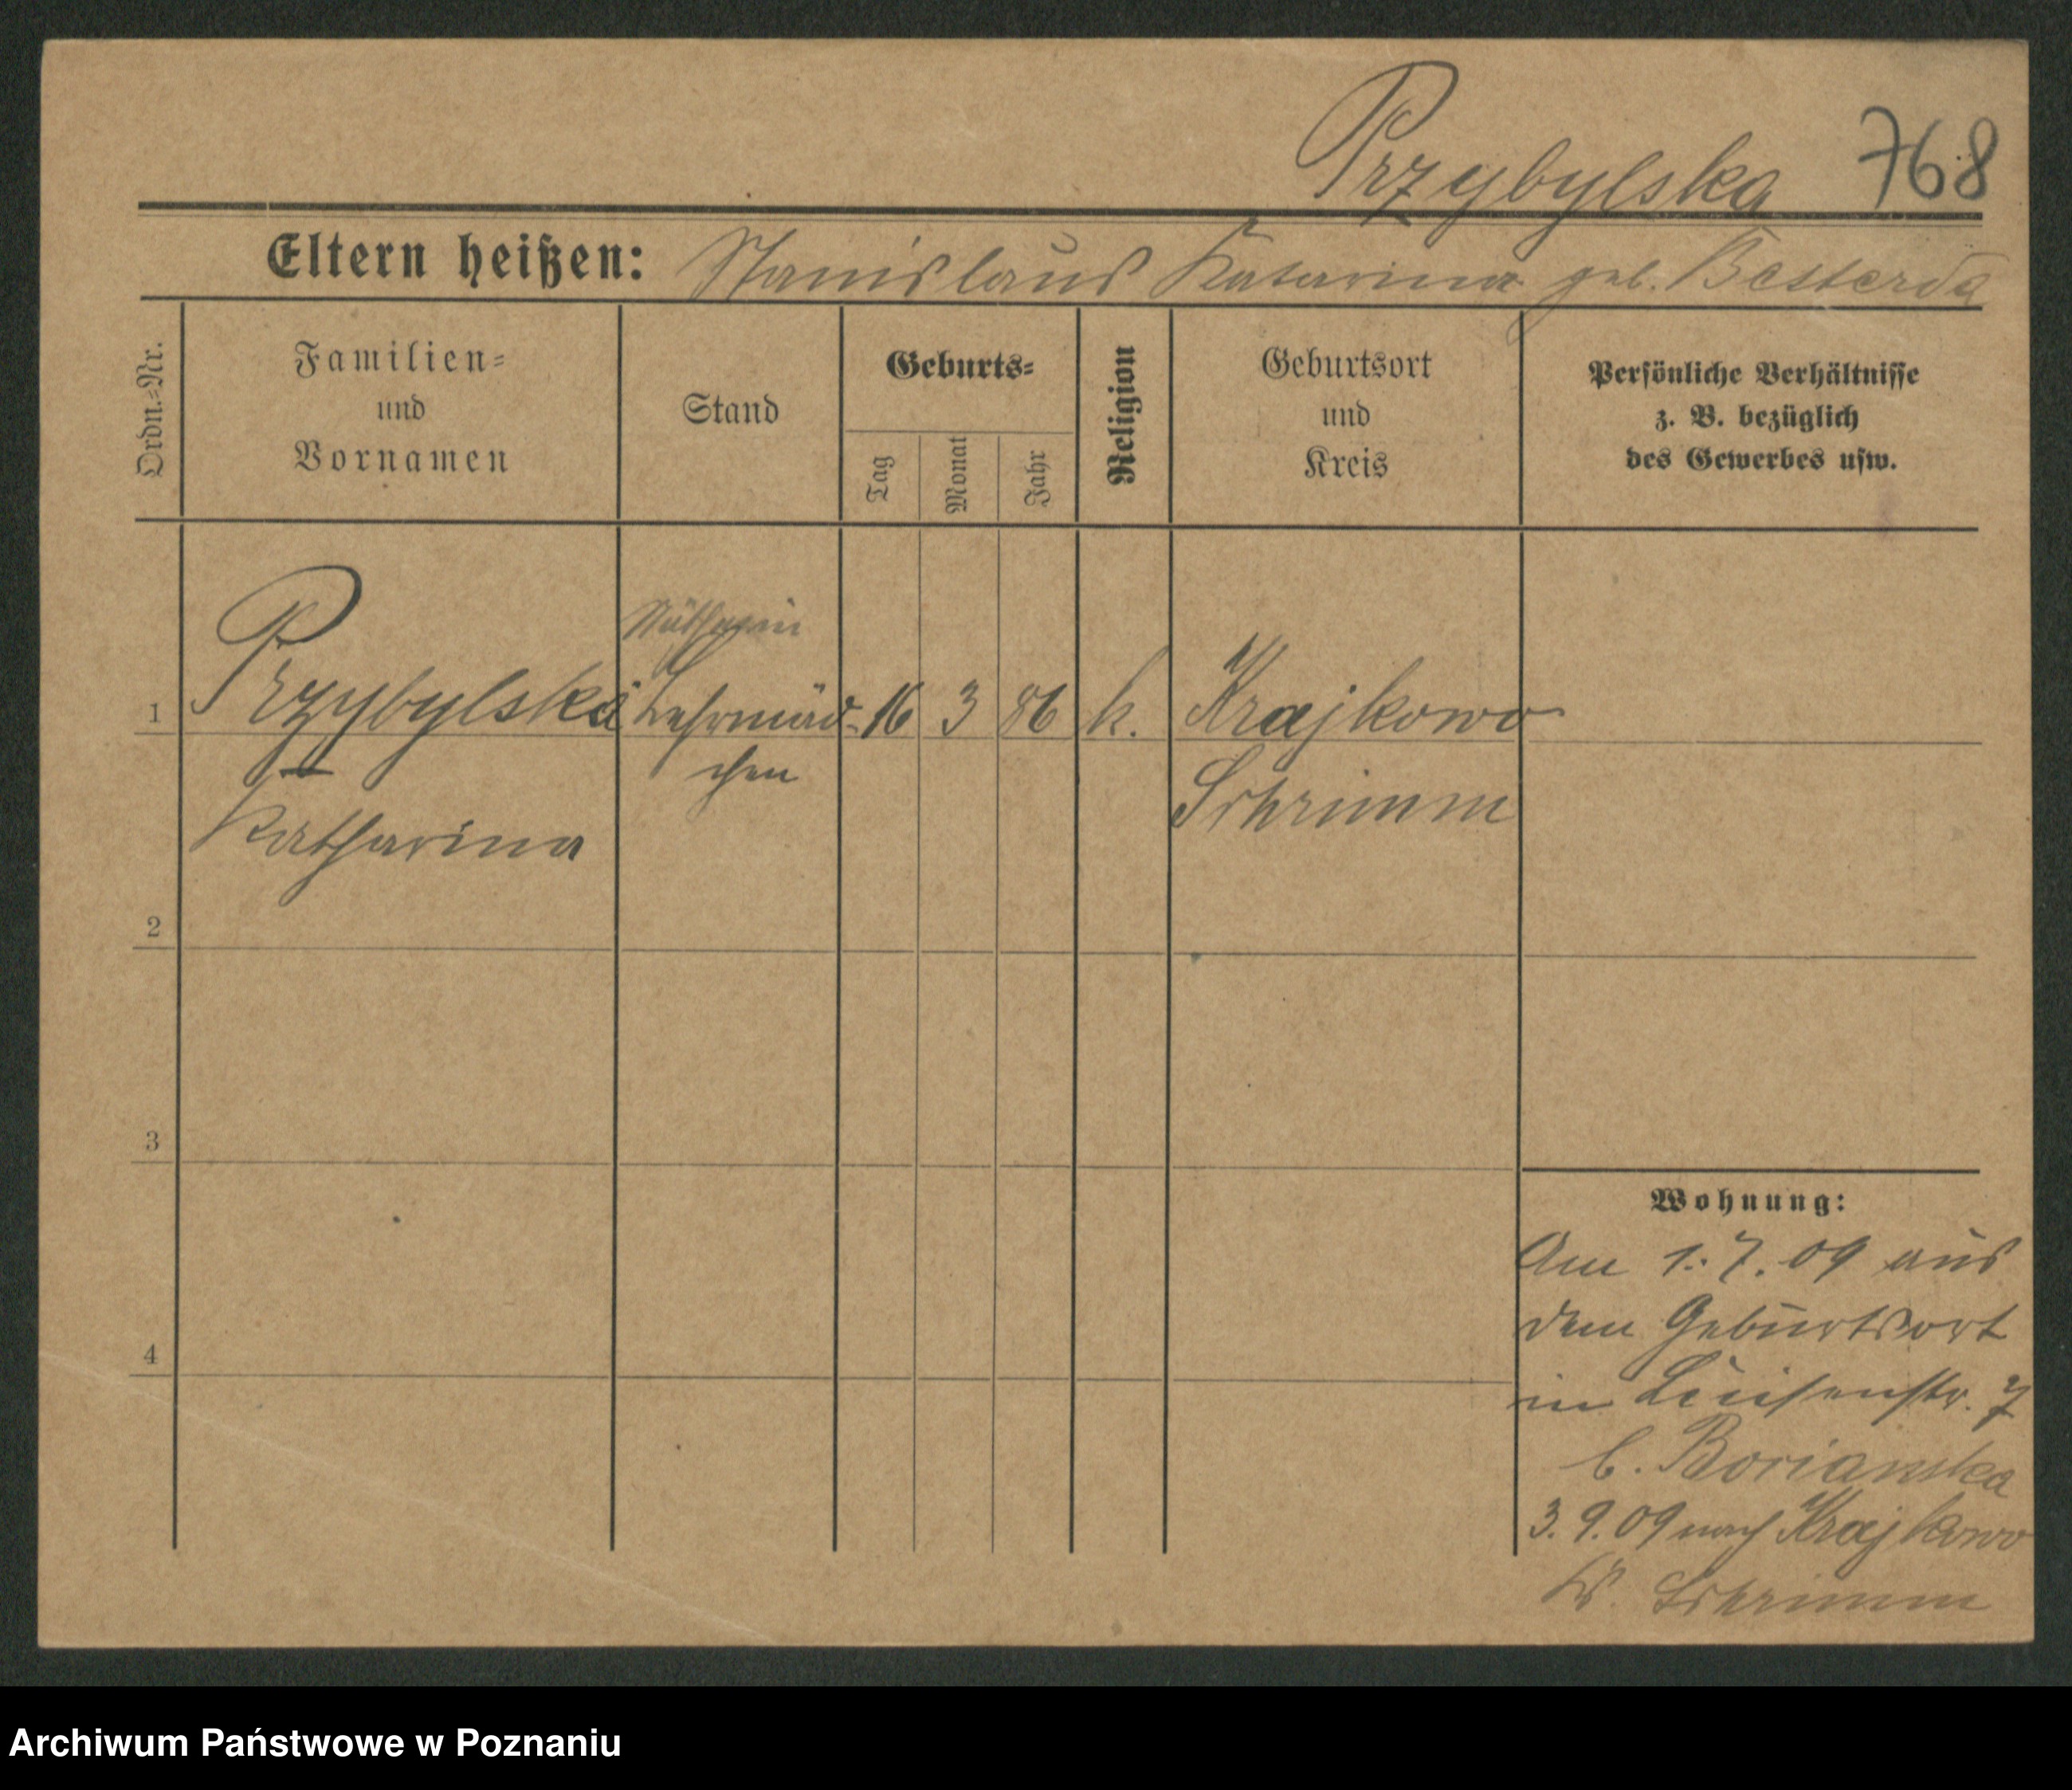 Przybylska 768
Eltern heißen: Stanislaus Katarina geb. Besterda
Ordn.=Nr.
Familien=
und
Vornamen
Stand
Geburts=
Tag
Monat
Jahr
Religion
Geburtsort
und
Kreis
Persönliche Verhältnisse
z. B. bezüglich
des Gewerbes usw.
Nätherin
1 Przybylska Lehrmäd- 16 3 86 k. Krajkowo
chen
Schrimm
Katharina
2
3
4
Wohnung:
Am 1.7.09 aus
dem Geburtsort
in Luisenstr. 7
b.
3.9.09 nach Krajkowo
Schrimm
Archiwum Państwowe w Poznaniu